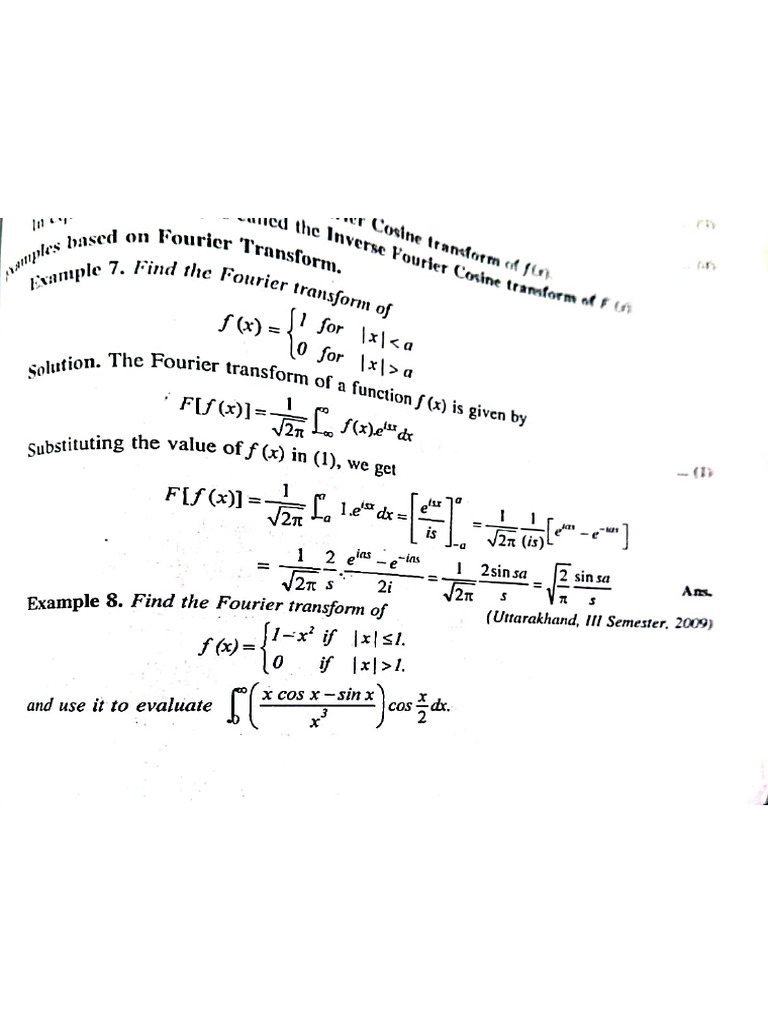 called the Inverse Fourier Cosine transform of F (s)
Cosine transform of f(x).
Examples based on Fourier Transform.
Example 7. Find the Fourier transform of
f (x) = {1 for |x| < a
{0 for |x| > a
Solution. The Fourier transform of a function f (x) is given by
F[f (x)] = 1/√2π ∫_{-∞}^{∞} f(x).e^{isx} dx ... (1)
Substituting the value of f (x) in (1), we get
F[f (x)] = 1/√2π ∫_{-a}^{a} 1.e^{isx} dx = [e^{isx}/is]_{-a}^{a} = 1/√2π 1/(is) [e^{ias} – e^{–ias}]
= 1/√2π 2/s . (e^{ias} – e^{–ias})/2i = 1/√2π (2 sin sa)/s = √(2/π) (sin sa)/s Ans.
Example 8. Find the Fourier transform of (Uttarakhand, III Semester, 2009)
f (x) = {1–x² if |x| ≤ 1.
{0 if |x| > 1.
and use it to evaluate ∫_0^∞ ((x cos x – sin x)/x³) cos x/2 dx.